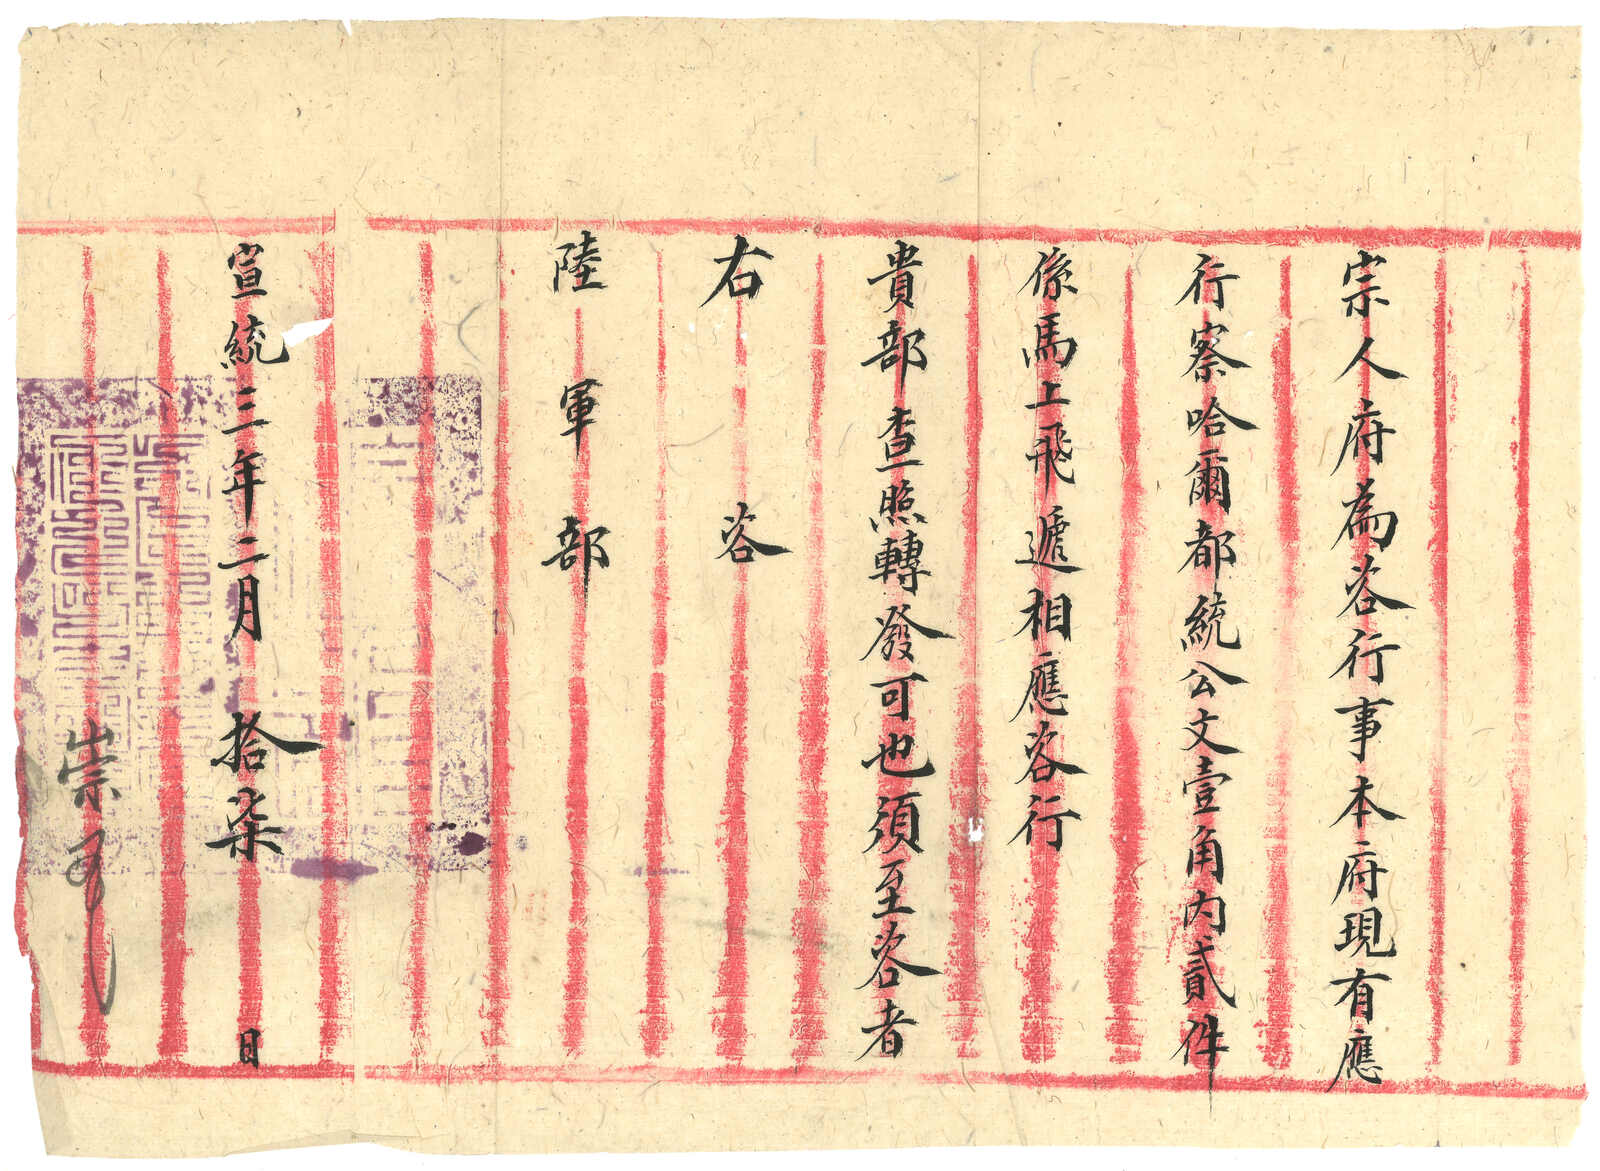 宗人府為咨行事本府現有應
行察哈爾都統公文壹角內貳件
係馬上飛遞相應咨行
貴部查照轉發可也須至咨者
右咨
陸軍部
宣統三年二月拾柒日
崇